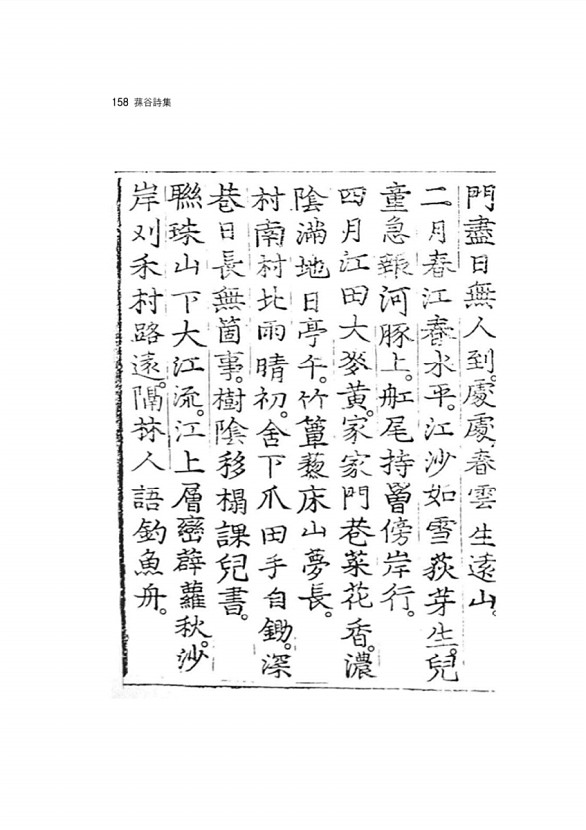 158 蓀谷詩集
門盡日無人到。處處春雲生遠山。
二月春江春水平。江沙如雪荻芽生。兒
童急報河豚上。舡尾持罾傍岸行。
四月江田大麥黃。家家門巷菜花香。濃
陰滿地日亭午。竹簟藜床山夢長。
村南村北雨晴初。舍下爪田手自鋤。深
巷日長無箇事。樹陰移榻課兒書。
聮珠山下大江流。江上層巒薜蘿秋。沙
岸刈禾村路遠。隔林人語釣魚舟。